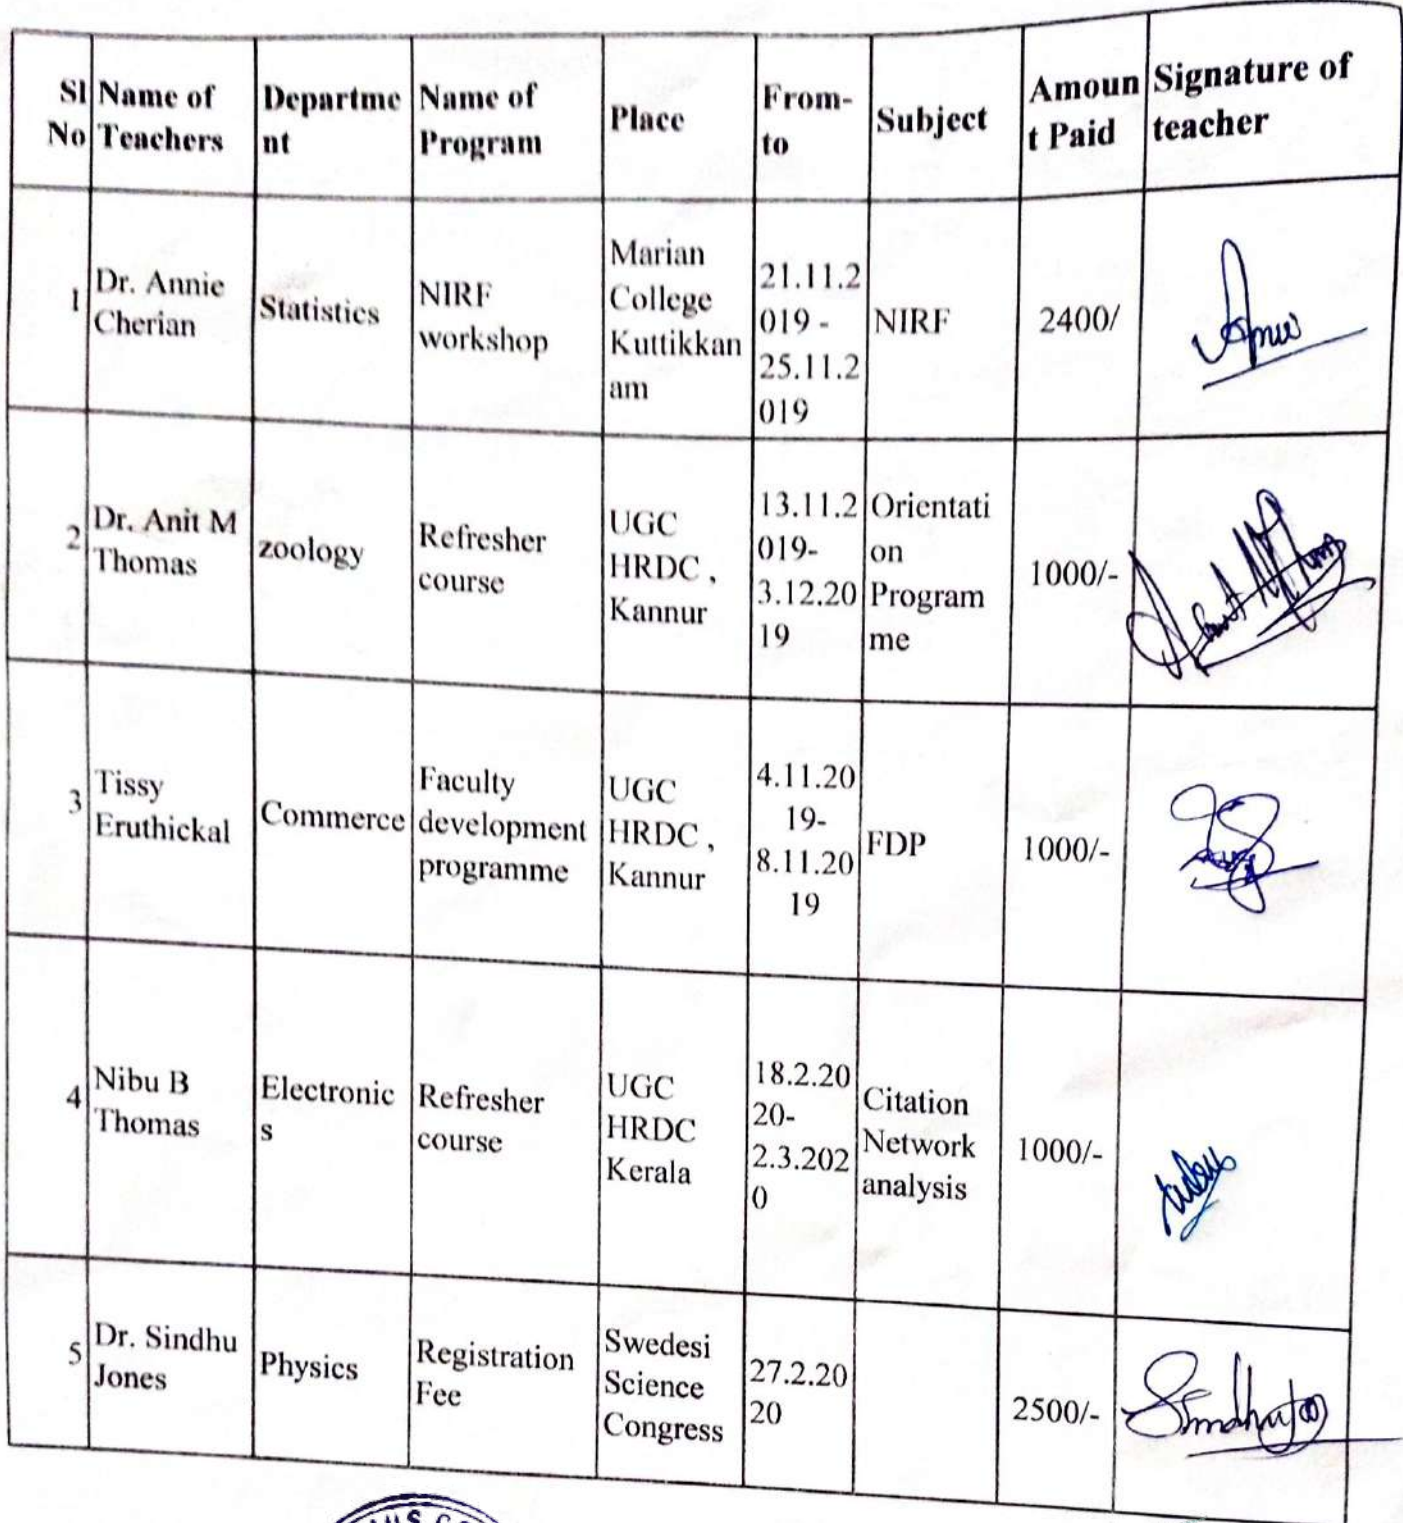 Sl Name of Departme Name of Place From- Subject Amoun Signature of
No Teachers nt Program to t Paid teacher
1
Dr. Annie
Cherian
Statistics
NIRF
workshop
Marian
College
Kuttikkan
am
21.11.2
019 -
25.11.2
019
NIRF
2400/
2
Dr. Anit M
Thomas
zoology
Refresher
course
UGC
HRDC ,
Kannur
13.11.2
019-
3.12.20
19
Orientati
on
Program
me
1000/-
3
Tissy
Eruthickal
Commerce
Faculty
development
programme
UGC
HRDC ,
Kannur
4.11.20
19-
8.11.20
19
FDP
1000/-
4
Nibu B
Thomas
Electronic
s
Refresher
course
UGC
HRDC
Kerala
18.2.20
20-
2.3.202
0
Citation
Network
analysis
1000/-
5
Dr. Sindhu
Jones
Physics
Registration
Fee
Swedesi
Science
Congress
27.2.20
20
2500/-